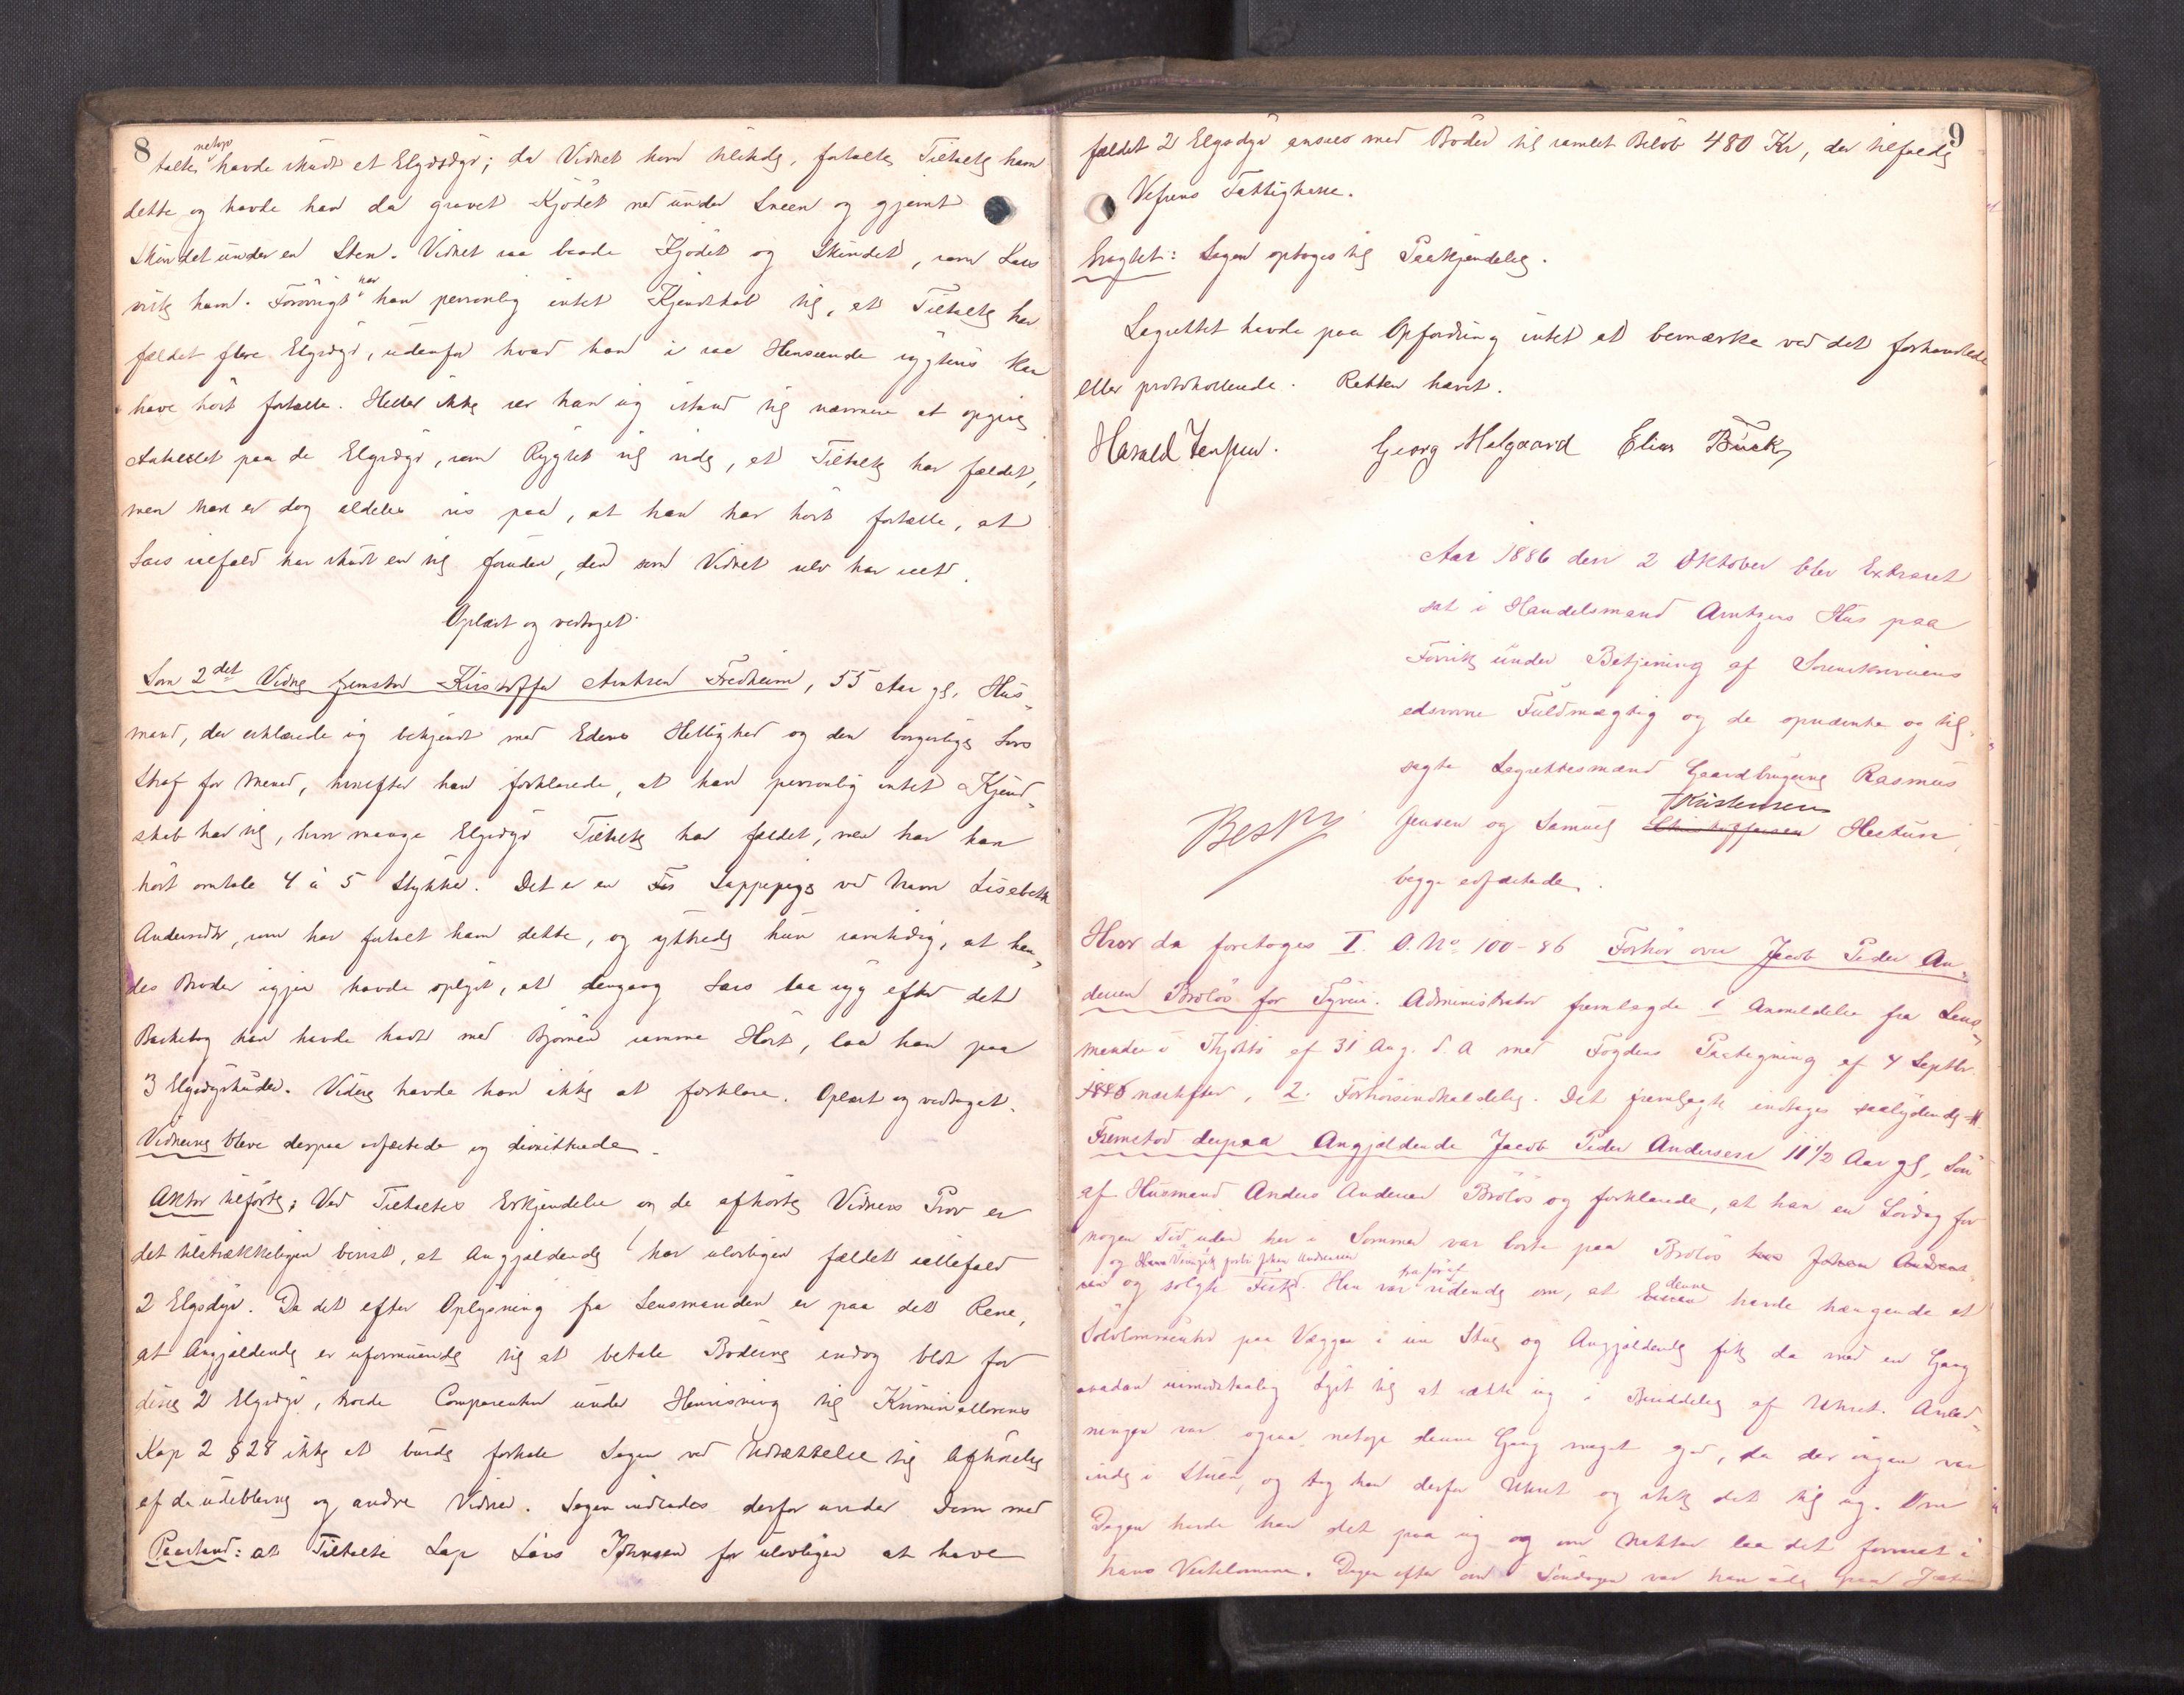 8
talte netop havde skudt et Elgsdyr; da Vidnet kom tilstede, fortalte Tiltalte ham
dette og havde han da gravet Kjödet ned under Sneen og gjemt
Skindet under en Sten. Vidnet saa baade Kjödet og Skindet, som Lars
viste ham. Forövrigt har han personlig intet Kjendskab til, at Tiltalte har
fældet flere Elgsdyr, udenfor hvad han i saa Henseende rygtevis kan
have hört fortælle. Heller ikke ser han sig istand til nærmere at opgive
Antallet paa de Elgsdyr, som Rygtet vil vide, at Tiltalte har fældet,
men han er dog aldeles vis paa, at han har hört fortælle, at
Lars ialfald har skudt en til foruden, den som Vidnet selv har seet.
Oplæst og vedtaget.
Som 2det Vidne fremstod Kristoffer Arntsen Fredheim, 55 Aar gl. Hus-
mand, der erklærede sig bekjendt med Edens Hellighed og den borgerlige Lovs
Straf for Mened, hvorefter han forklarede, at han personlig intet Kjend-
skab har til, hvor mange Elgsdyr Tiltalte har fældet, men har han
hört omtale 4 à 5 Stykker. Det er en Lappepige ved Navn Lisebeth
Andersdtr, som har fortalt ham dette, og yttrede hun samtidig, at hen-
des Broder igjen havde oplyst, at dengang Lars laa syg efter det
Basketag han havde havt med Björnen samme Höst, laa han paa
3 Elgsdyrhuder. Videre havde han ikke at forklare. Oplæst og vedtaget.
Vidnerne bleve derpaa edfæstede og dimitterede.
Aktor tilförte: Ved Tiltaltes Erkjendelse og de afhörte Vidners Prov er
det tilstrækkeligen bevist, at Angjældende har ulovligen fældet iallefald
2 Elgsdyr. Da det efter Oplysning fra Lensmanden er paa det Rene,
at Angjældende er uformuende til at betale Böderne endog blot for
disse 2 Elgsdyr, troede Comparenten under Henvisning til Kriminallovens
Kap 2 § 28 ikke at burde forhale Sagen ved Udsættelse til Afhörelse
af de udeblevne og andre Vidner. Sagen indlades derfor under Dom med
Paastand: at Tiltalte Lap Lars Johnsen for ulovligen at have
9
fældet 2 Elgsdyr ansees med Böder til samlet Belöb 480 Kr, der tilfalde
Vefsens Fattigkasse.
Eragtet: Sagen optages til Paakjendelse.
Lagrettet havde paa Opfordring intet at bemærke ved det forhandlede
eller protokollerede. Retten hævet.
Harald Jensen. Georg Melgaard Elias Buck
Aar 1886 den 2 Oktober blev Extraret
sat i Handelsmand Arntzens Hus paa
Forvik under Betjening af Sorenskriverens
edsvorne Fuldmægtig og de opnævnte og til-
sagte Lagrettesmænd Gaardbrugerne Rasmus
Jensen og Samuel Kristensen Hestun,
begge edfæstede.
Hvor da foretoges I. O. No 100-86 Forhör over Jacob Peder An-
dersen Brölös for Tyveri. Administrator fremlagde 1 Anmeldelse fra Lens-
manden i Thjöttö af 31 Aug. d. A med Fogdens Paategning af 4 Septbr.
næstefter, 2. Forhörsindkaldelse. Det fremlagte indtages saalydende #
Fremstod derpaa Angjældende Jacob Peder Andersen 11 1/2 Aar gl, Sön
af Husmand Anders Andersen Brölös og forklarede, at han en Lördag for
nogen Tid siden her i Sommer var borte paa Brölös hos Johan Andreas-
og solgte Fisk. Han var fra för af vidende om, at denne havde hængende et
Sölvlommeuhr paa Væggen i sin Stue og Angjældende fik da med en Gang
saadan uimodstaalig Lyst til at sætte sig i Besiddelse af Uhret. Anled-
ningen var ogsaa netop denne Gang meget god, da der ingen var
inde i Stuen, og tog han derfor Uhret og stak det til sig. Om
Dagen havde han det paa sig og om Natten laa det forvaret i
hans Vestelomme. Dagen efter om Söndagen var han ude paa